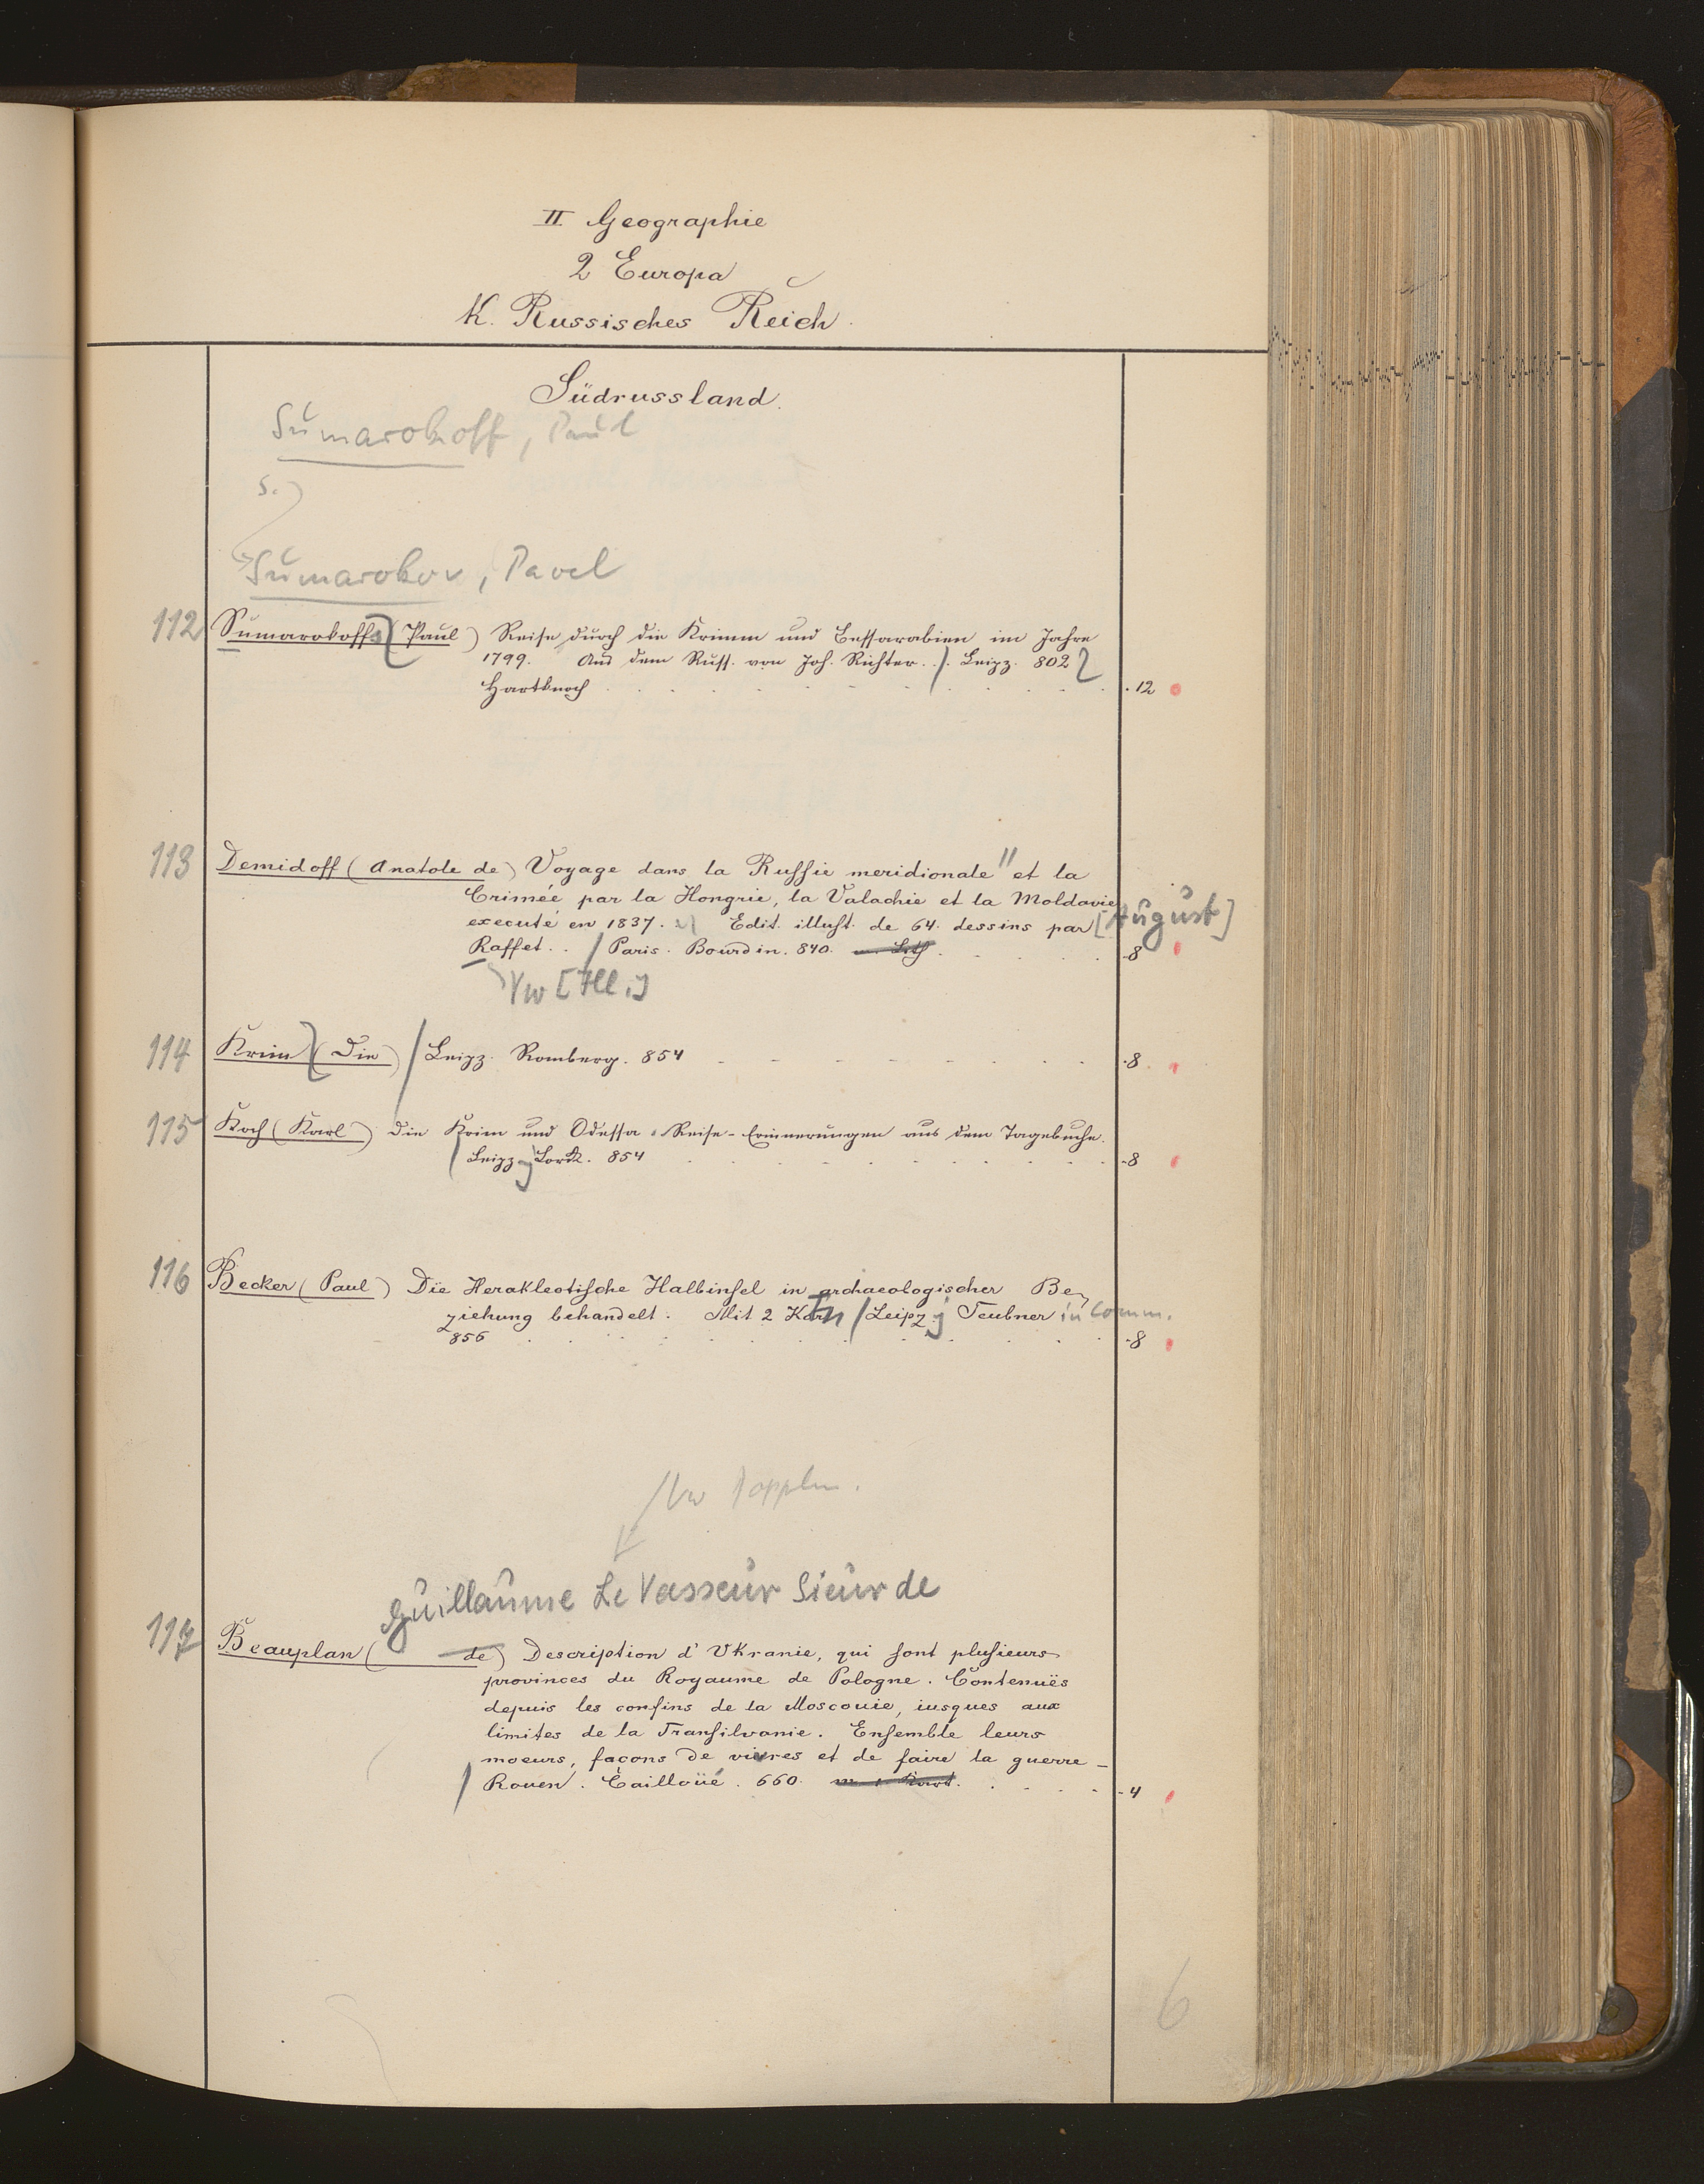 II Geographie
2 Europa
K. Russisches Reich.
Südrussland.
Sumarokoff, Paul
s.
Sumarokov, Pavel
112 Sumarokoffs (Paul) Reise durch die Krimm und Bessarabien im Jahre
1799. Aus dem Russ. von Joh. Richter. Leipz. 802
Hartknoch 12
113 Demidoff (Anatole de) Voyage dans la Russie meridionale et la
Crimée par la Hongrie, la Valachie et la Moldavie
executé en 1837. Edit. illust. de 64. dessins par [August]
Raffet. / Paris. Bourdin. 840. 8
Vw [Ill.]
114 Krim (Die) / Leipz. Romberg. 854 8
115 Koch (Karl) Die Krim und Odessa. Reise-Erinnerungen aus dem Tagebuche.
Leipz Lorck. 854 8
116 Becker (Paul) Die Herakleotische Halbinsel in archaeologischer Be-
ziehung behandelt. Mit 2 Kartn / Leipz. Teubner in Comm.
856 8
Vw
Guillaume Le Vasseur Sieur de
117 Beauplan ( de) Description d'Ukranie, qui sont plusieurs
provinces du Royaume de Pologne. Contenuës
depuis les confins de la Moscouie, iusques aux
limites de la Transilvanie. Ensemble leurs
moeurs, façons de vivres et de faire la guerre –
/ Rouen. Cailloüé. 660. 4
6